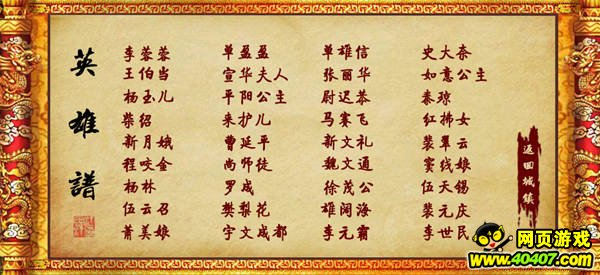 英雄譜
李蓉蓉 单盈盈 单雄信 史大奈
王伯当 宣华夫人 张丽华 如意公主
杨玉儿 平阳公主 尉迟恭 秦琼
柴绍 朱护儿 马赛飞 红拂女
新月娥 曹延平 新文礼 裴翠云
程咬金 尚师徒 魏文通 窦线娘
杨林 罗成 徐茂公 伍天锡
伍云召 樊梨花 雄阔海 裴元庆
萧美娘 宇文成都 李元霸 李世民
返回城镇
网页游戏
www.40407.com